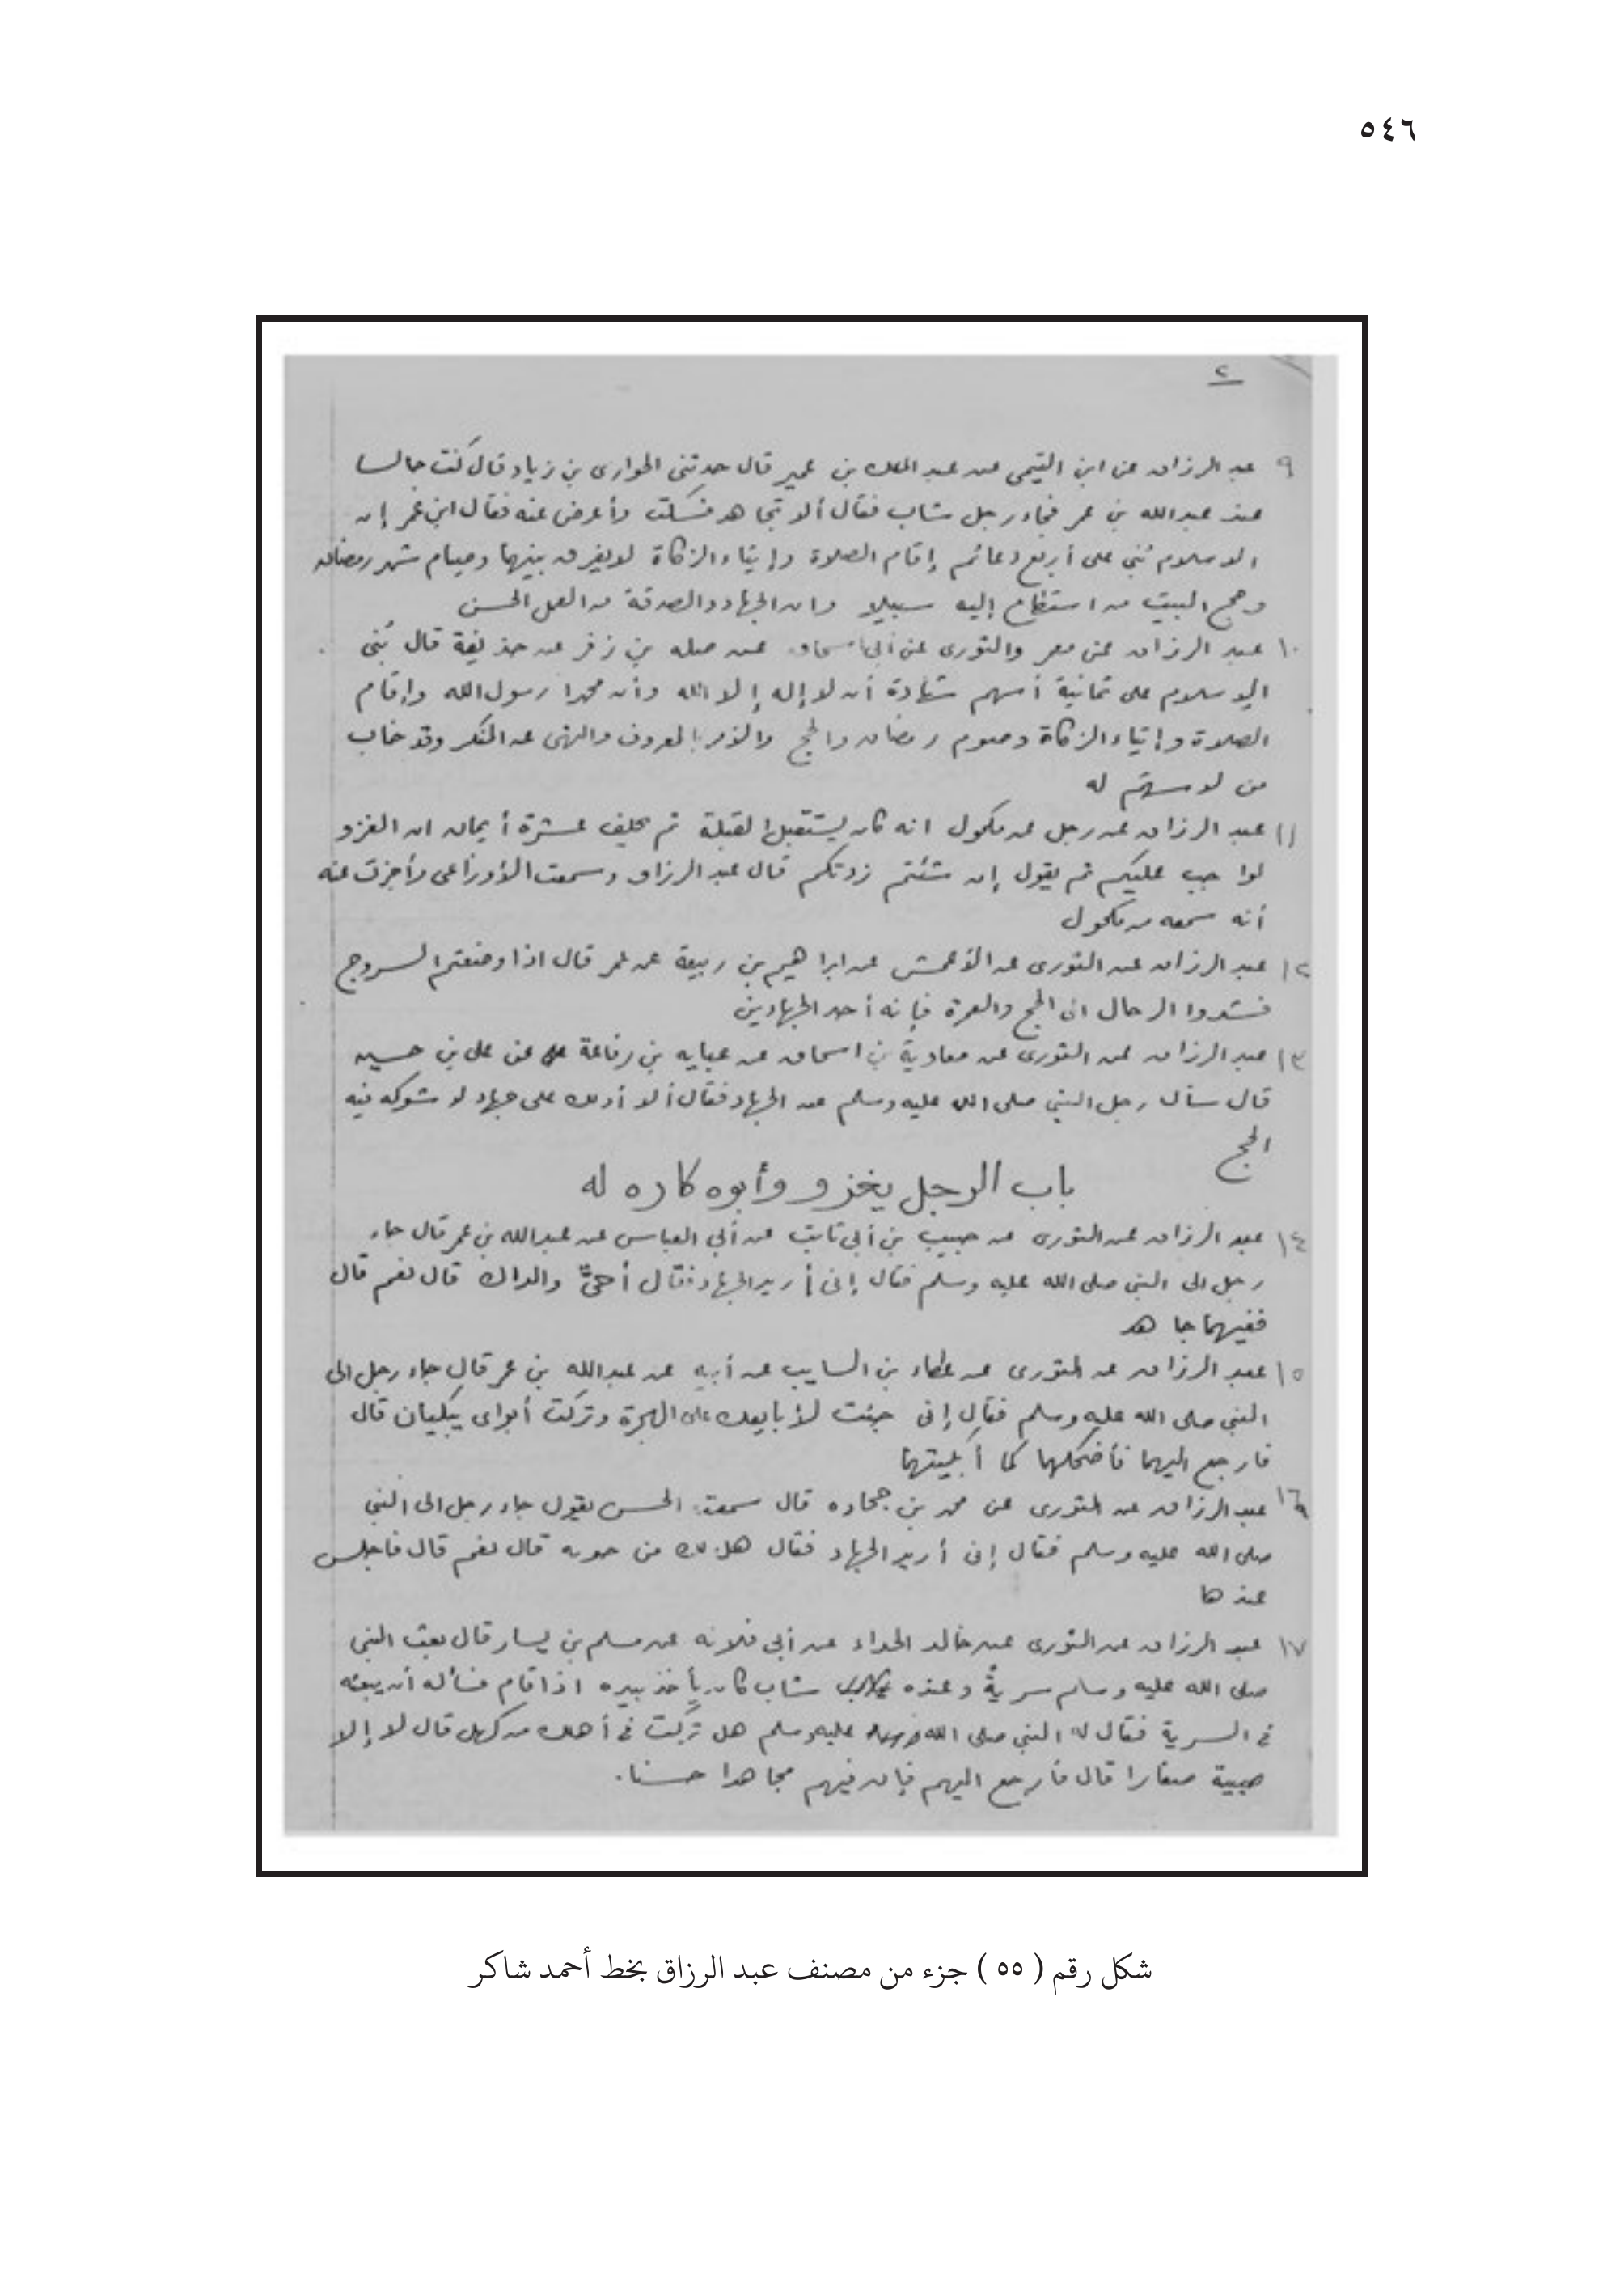 ٥٤٦
٢
٩ عبد الرزاق عن ابن التيمى عن عبد الملك بن عمير قال حدثنى الحوارى بن زياد قال كنت جالسا
عند عبد الله بن عمر فجاء رجل شاب فقال ألا تجاهد فسكت وأعرض عنه فقال ابن عمر إن
الاسلام بُنى على أربع دعائم إقام الصلاة وإيتاء الزكاة لا يفرق بينهما وصيام شهر رمضان
وحج البيت من استطاع إليه سبيلا وان الجهاد والصدقة من العمل الحسن
١٠ عبد الرزاق عن معمر والثورى عن أبى اسحاق عن صله بن زفر عن حذيفة قال بُنى
الإسلام على ثمانية أسهم شهادة أن لا إله إلا الله وأن محمدا رسول الله وإقام
الصلاة وإيتاء الزكاة وصوم رمضان والحج والأمر بالمعروف والنهى عن المنكر وقد خاب
من لا سهم له
١١ عبد الرزاق عن رجل عن مكحول انه كان يستقبل القبلة ثم يحلف عشرة أيمان ان الغزو
لواجب عليكم ثم يقول إن شئتم زدتكم قال عبد الرزاق وسمعت الأوزاعى وأخبرت عنه
أنه سمعه من مكحول
١٢ عبد الرزاق عن الثورى عن الأعمش عن ابراهيم بن ربيعة عن عمر قال اذا وضعتم السروج
فشدوا الرحال الى الحج والعمرة فإنه أحد الجهادين
١٣ عبد الرزاق عن الثورى عن معاوية بن اسحاق عن عبايه بن رفاعة عن على بن حسين
قال سأل رجل النبى صلى الله عليه وسلم عن الجهاد فقال ألا أدلك على جهاد لا شوكه فيه
الحج
باب الرجل يغزو وأبوه كاره له
١٤ عبد الرزاق عن الثورى عن حبيب بن أبى ثابت عن أبى العباس عن عبد الله بن عمر قال جاء
رجل الى النبى صلى الله عليه وسلم فقال إنى أريد الجهاد فقال أحىٌّ والداك قال نعم قال
ففيهما جاهد
١٥ عبد الرزاق عن الثورى عن عطاء بن السايب عن أبيه عن عبد الله بن عمر قال جاء رجل الى
النبى صلى الله عليه وسلم فقال إنى جئت لأبايعك على الهجرة وتركت أبواى يبكيان قال
فارجع اليهما فأضحكهما كما أبكيتهما
١٦ عبد الرزاق عن الثورى عن محمد بن جحاده قال سمعت الحسن يقول جاء رجل الى النبى
صلى الله عليه وسلم فقال إنى أريد الجهاد فقال هل لك من حوبه قال نعم قال فاجلس
عندها
١٧ عبد الرزاق عن الثورى عن خالد الحذاء عن أبى قلابه عن مسلم بن يسار قال بعث النبى
صلى الله عليه وسلم سريةً وعنده شاب كان يأخذ بيده اذا قام فسأله أن يبعثه
فى السرية فقال له النبى صلى الله عليه وسلم هل تركت فى أهلك من كهل قال لا إلا
صبية صغارا قال فارجع اليهم فإن فيهم مجاهدا حسنا.
شكل رقم ( ٥٥ ) جزء من مصنف عبد الرزاق بخط أحمد شاكر